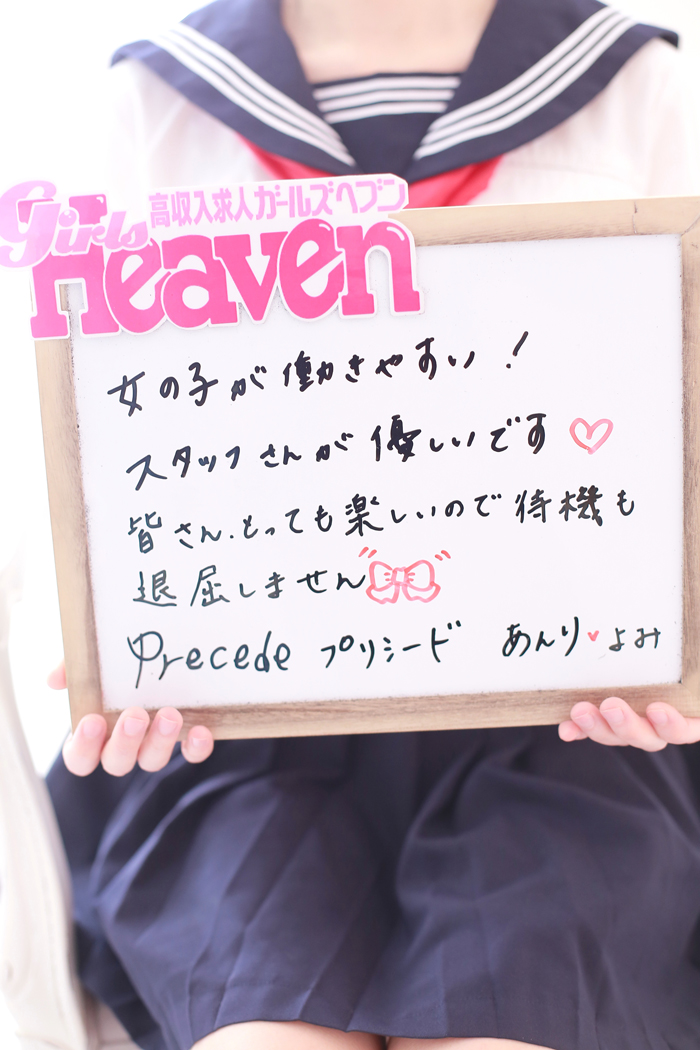 高収入求人ガールズヘブン
Girls
Heaven
女の子が働きやすい!
スタッフさんが優しいです♡
皆さん、とっても楽しいので待機も
退屈しません
Precede プリシード あんり♥よみ